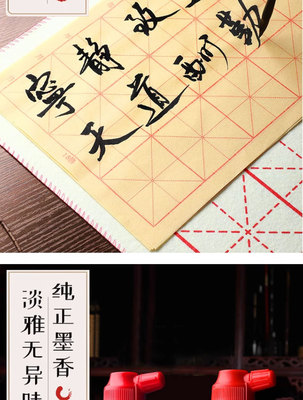 寧静致
天道酬勤
纯正墨香
淡雅无异味